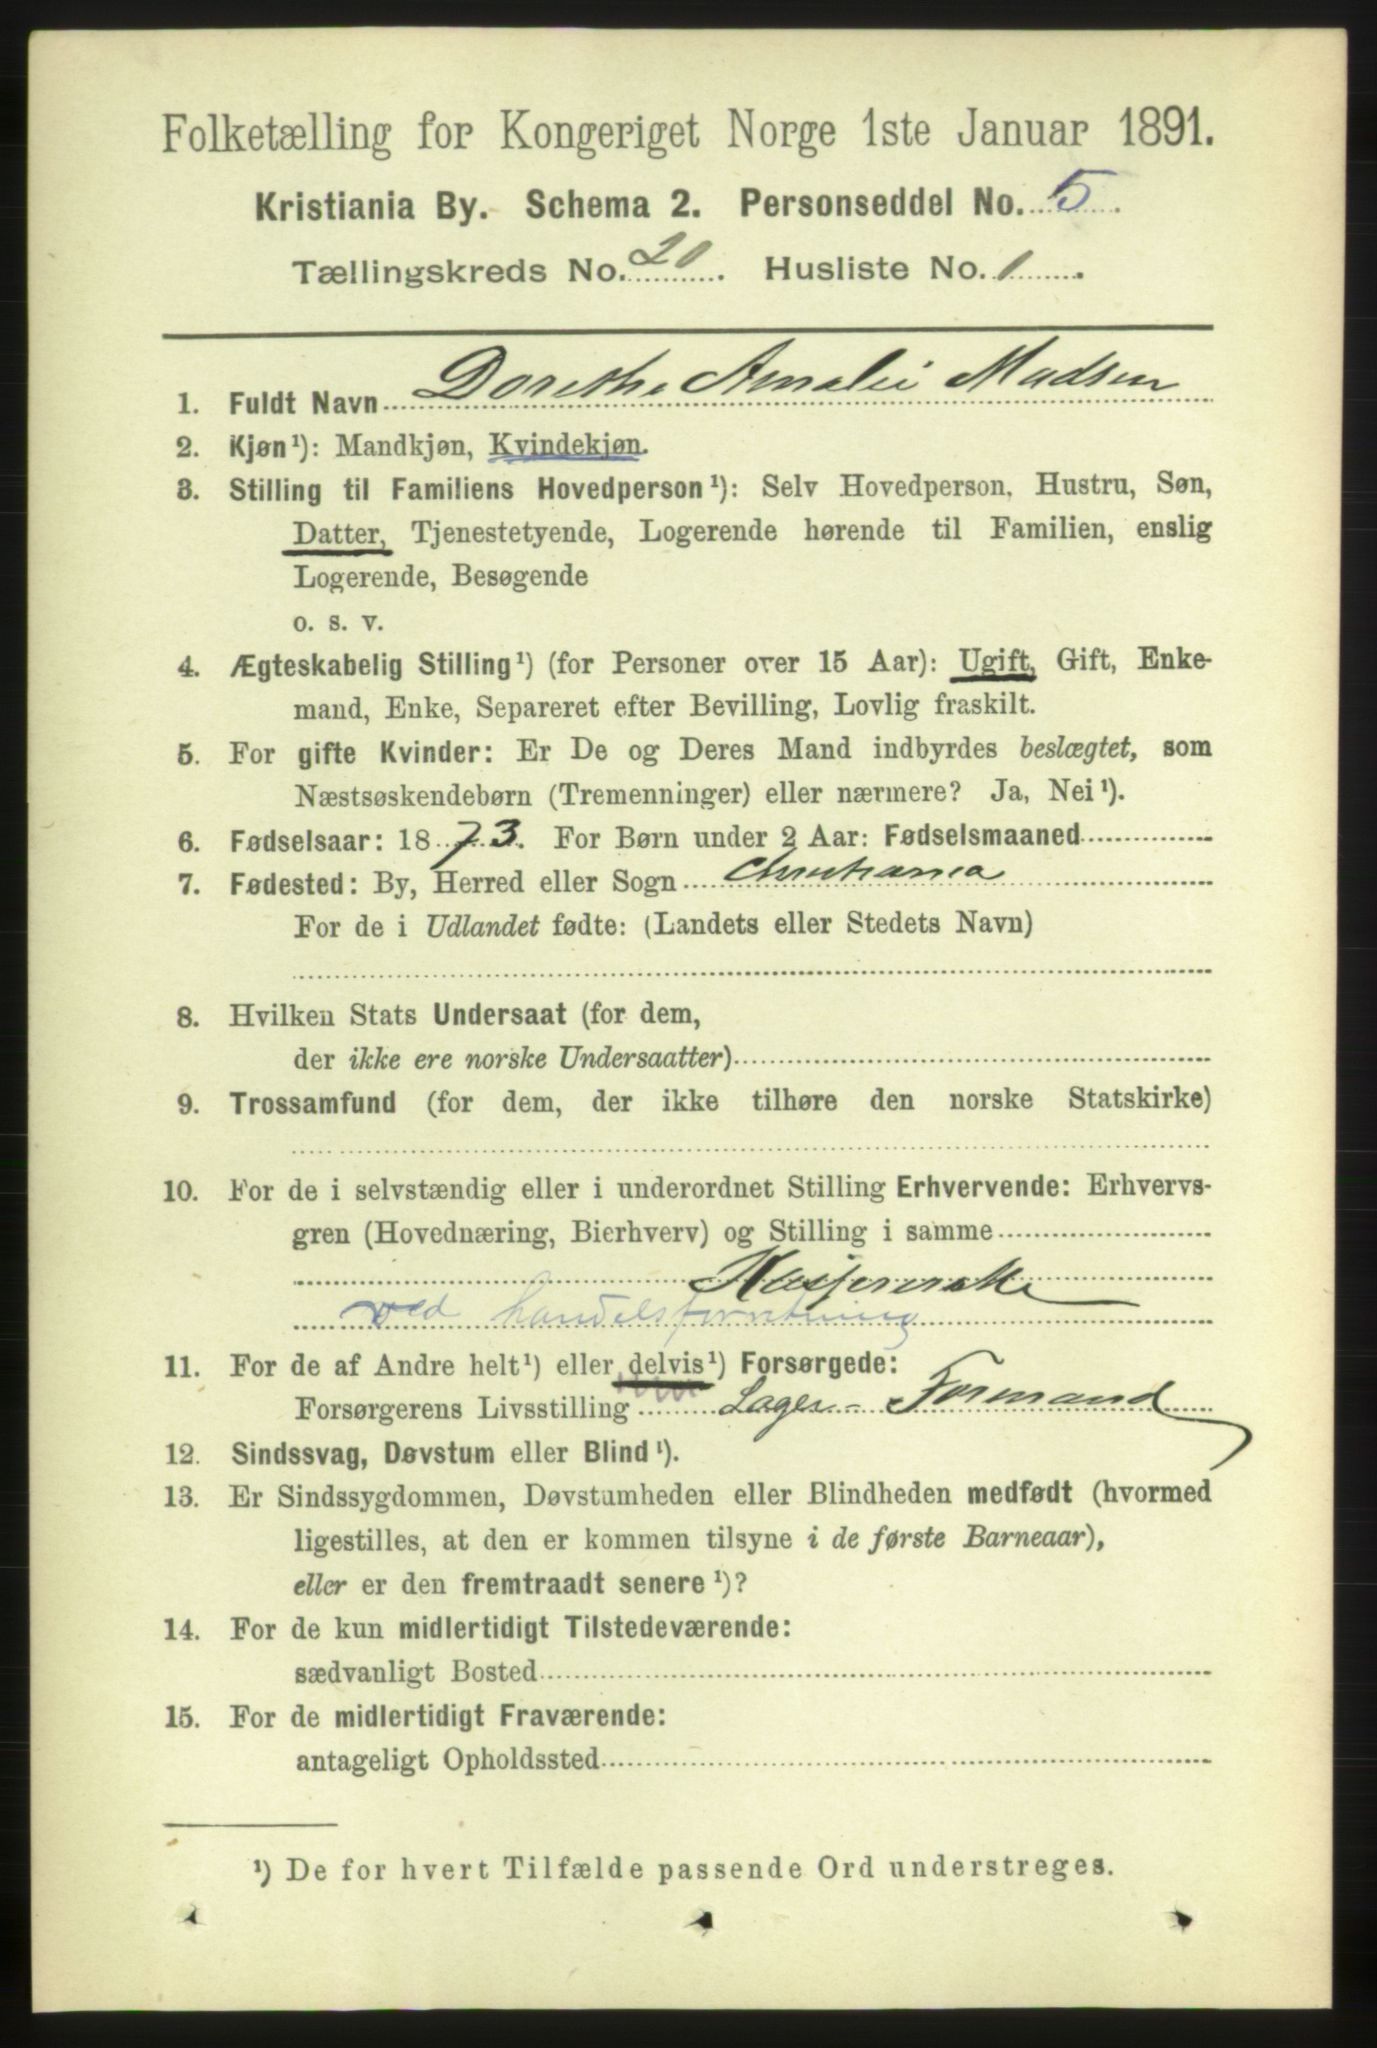 Folketælling for Kongeriget Norge 1ste Januar 1891.
Kristiania By. Schema 2. Personseddel No. 5.
Tællingskreds No. 20. Husliste No. 1.
1. Fuldt Navn Dorethe Amalie Madsen
2. Kjøn¹): Mandkjøn, Kvindekjøn.
3. Stilling til Familiens Hovedperson¹): Selv Hovedperson, Hustru, Søn,
Datter, Tjenestetyende, Logerende hørende til Familien, enslig
Logerende, Besøgende
o. s. v.
4. Ægteskabelig Stilling¹) (for Personer over 15 Aar): Ugift, Gift, Enke-
mand, Enke, Separeret efter Bevilling, Lovlig fraskilt.
5. For gifte Kvinder: Er De og Deres Mand indbyrdes beslægtet, som
Næstsøskendebørn (Tremenninger) eller nærmere? Ja, Nei¹).
6. Fødselsaar: 1873. For Børn under 2 Aar: Fødselsmaaned
7. Fødested: By, Herred eller Sogn Christiania
For de i Udlandet fødte: (Landets eller Stedets Navn)
8. Hvilken Stats Undersaat (for dem,
der ikke ere norske Undersaatter)
9. Trossamfund (for dem, der ikke tilhøre den norske Statskirke)
10. For de i selvstændig eller i underordnet Stilling Erhvervende: Erhvervs-
gren (Hovednæring, Bierhverv) og Stilling i samme
Kasjererske
ved handelsforretning
11. For de af Andre helt¹) eller delvis¹) Forsørgede:
Forsørgerens Livsstilling Lager-Formand
12. Sindssvag, Døvstum eller Blind¹).
13. Er Sindssygdommen, Døvstumheden eller Blindheden medfødt (hvormed
ligestilles, at den er kommen tilsyne i de første Barneaar),
eller er den fremtraadt senere¹)?
14. For de kun midlertidigt Tilstedeværende:
sædvanligt Bosted
15. For de midlertidigt Fraværende:
antageligt Opholdssted
¹) De for hvert Tilfælde passende Ord understreges.